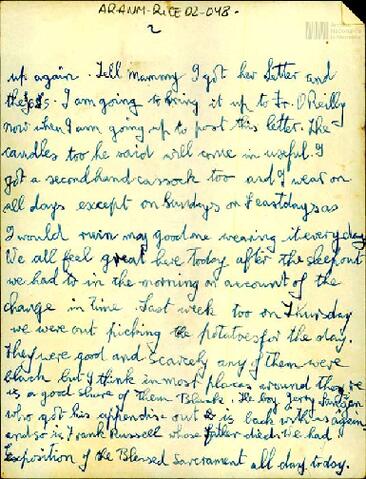 ARANM-RICE 02-048.
2
up again. Tell mammy I got her letter and
the I am going to bring it up to Fr. O'Reilly
now when I am going up to post this letter. The
candles too he said will come in useful. I
got a secondhand cassock too and I wear on
all days except on Sundays or Feastdays as
I would ruin my good one wearing it every day
We all feel great here today after the sleep out
we had to in the morning on account of the
change in time. Last week too on Thursday
we were out picking the potatoes for the day.
They were good and scarcely any of them were
black but I think in most places around there
is a good share of them Black. The boy Jerry
who got his appendix out is back with us again
and so is Frank Russell whose father died. We had
Exposition of the Blessed Sacrament all day today.